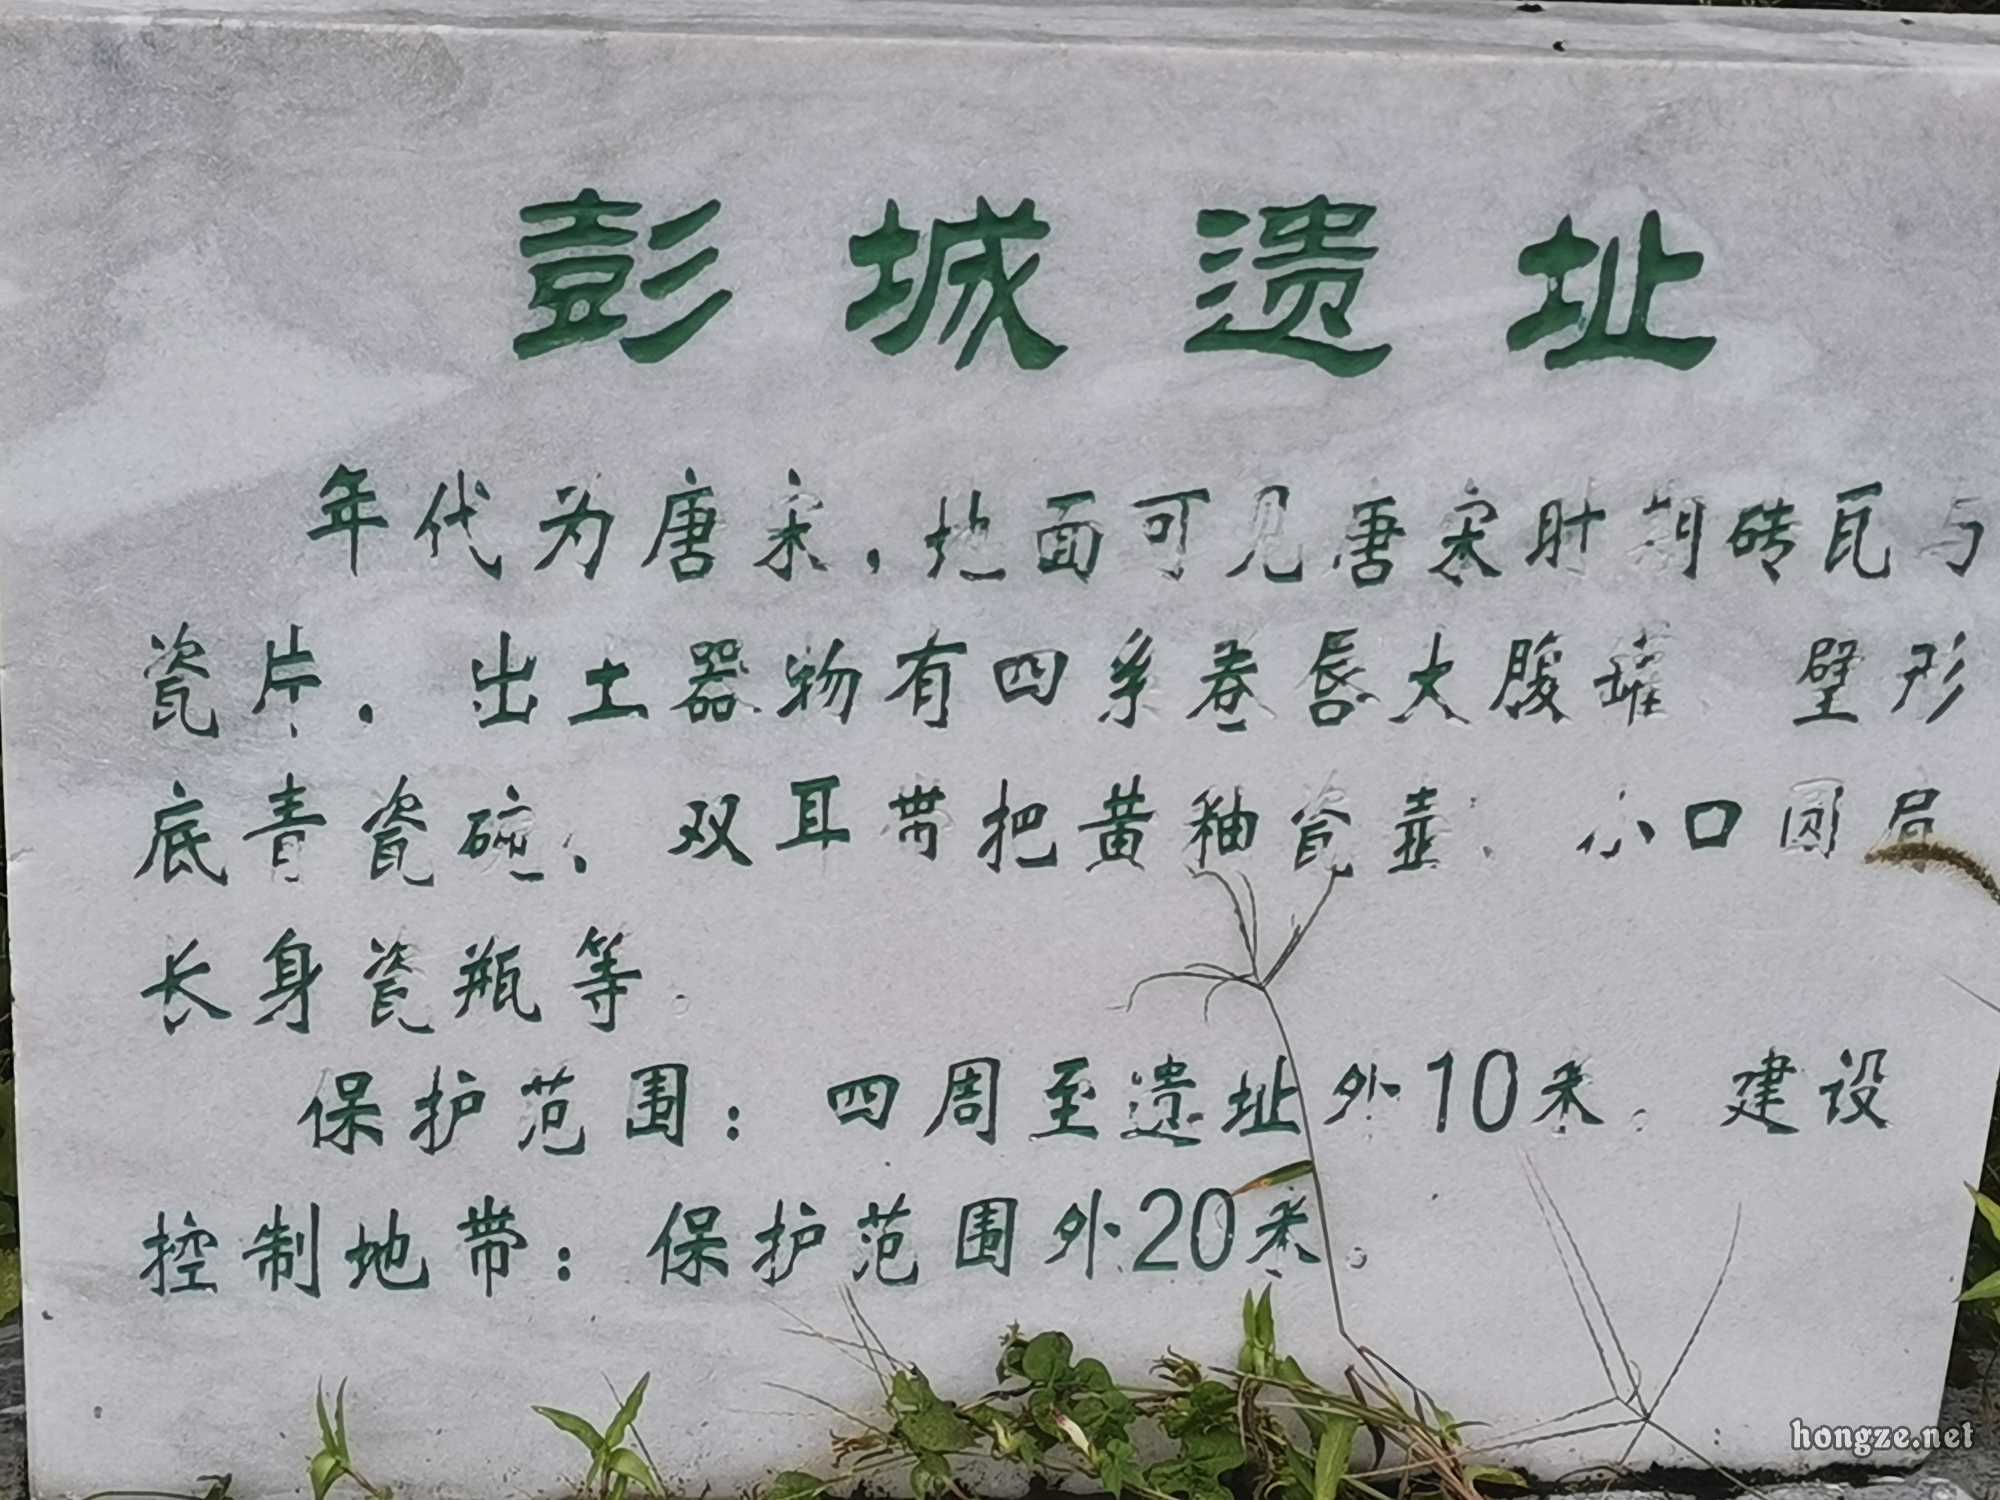 彭城遗址
年代为唐宋，地面可见唐宋时期砖瓦与
瓷片。出土器物有四系卷唇大腹罐、壁形
底青瓷碗、双耳带把黄釉瓷壶、小口圆肩
长身瓷瓶等。
保护范围：四周至遗址外10米。建设
控制地带：保护范围外20米。
hongze.net